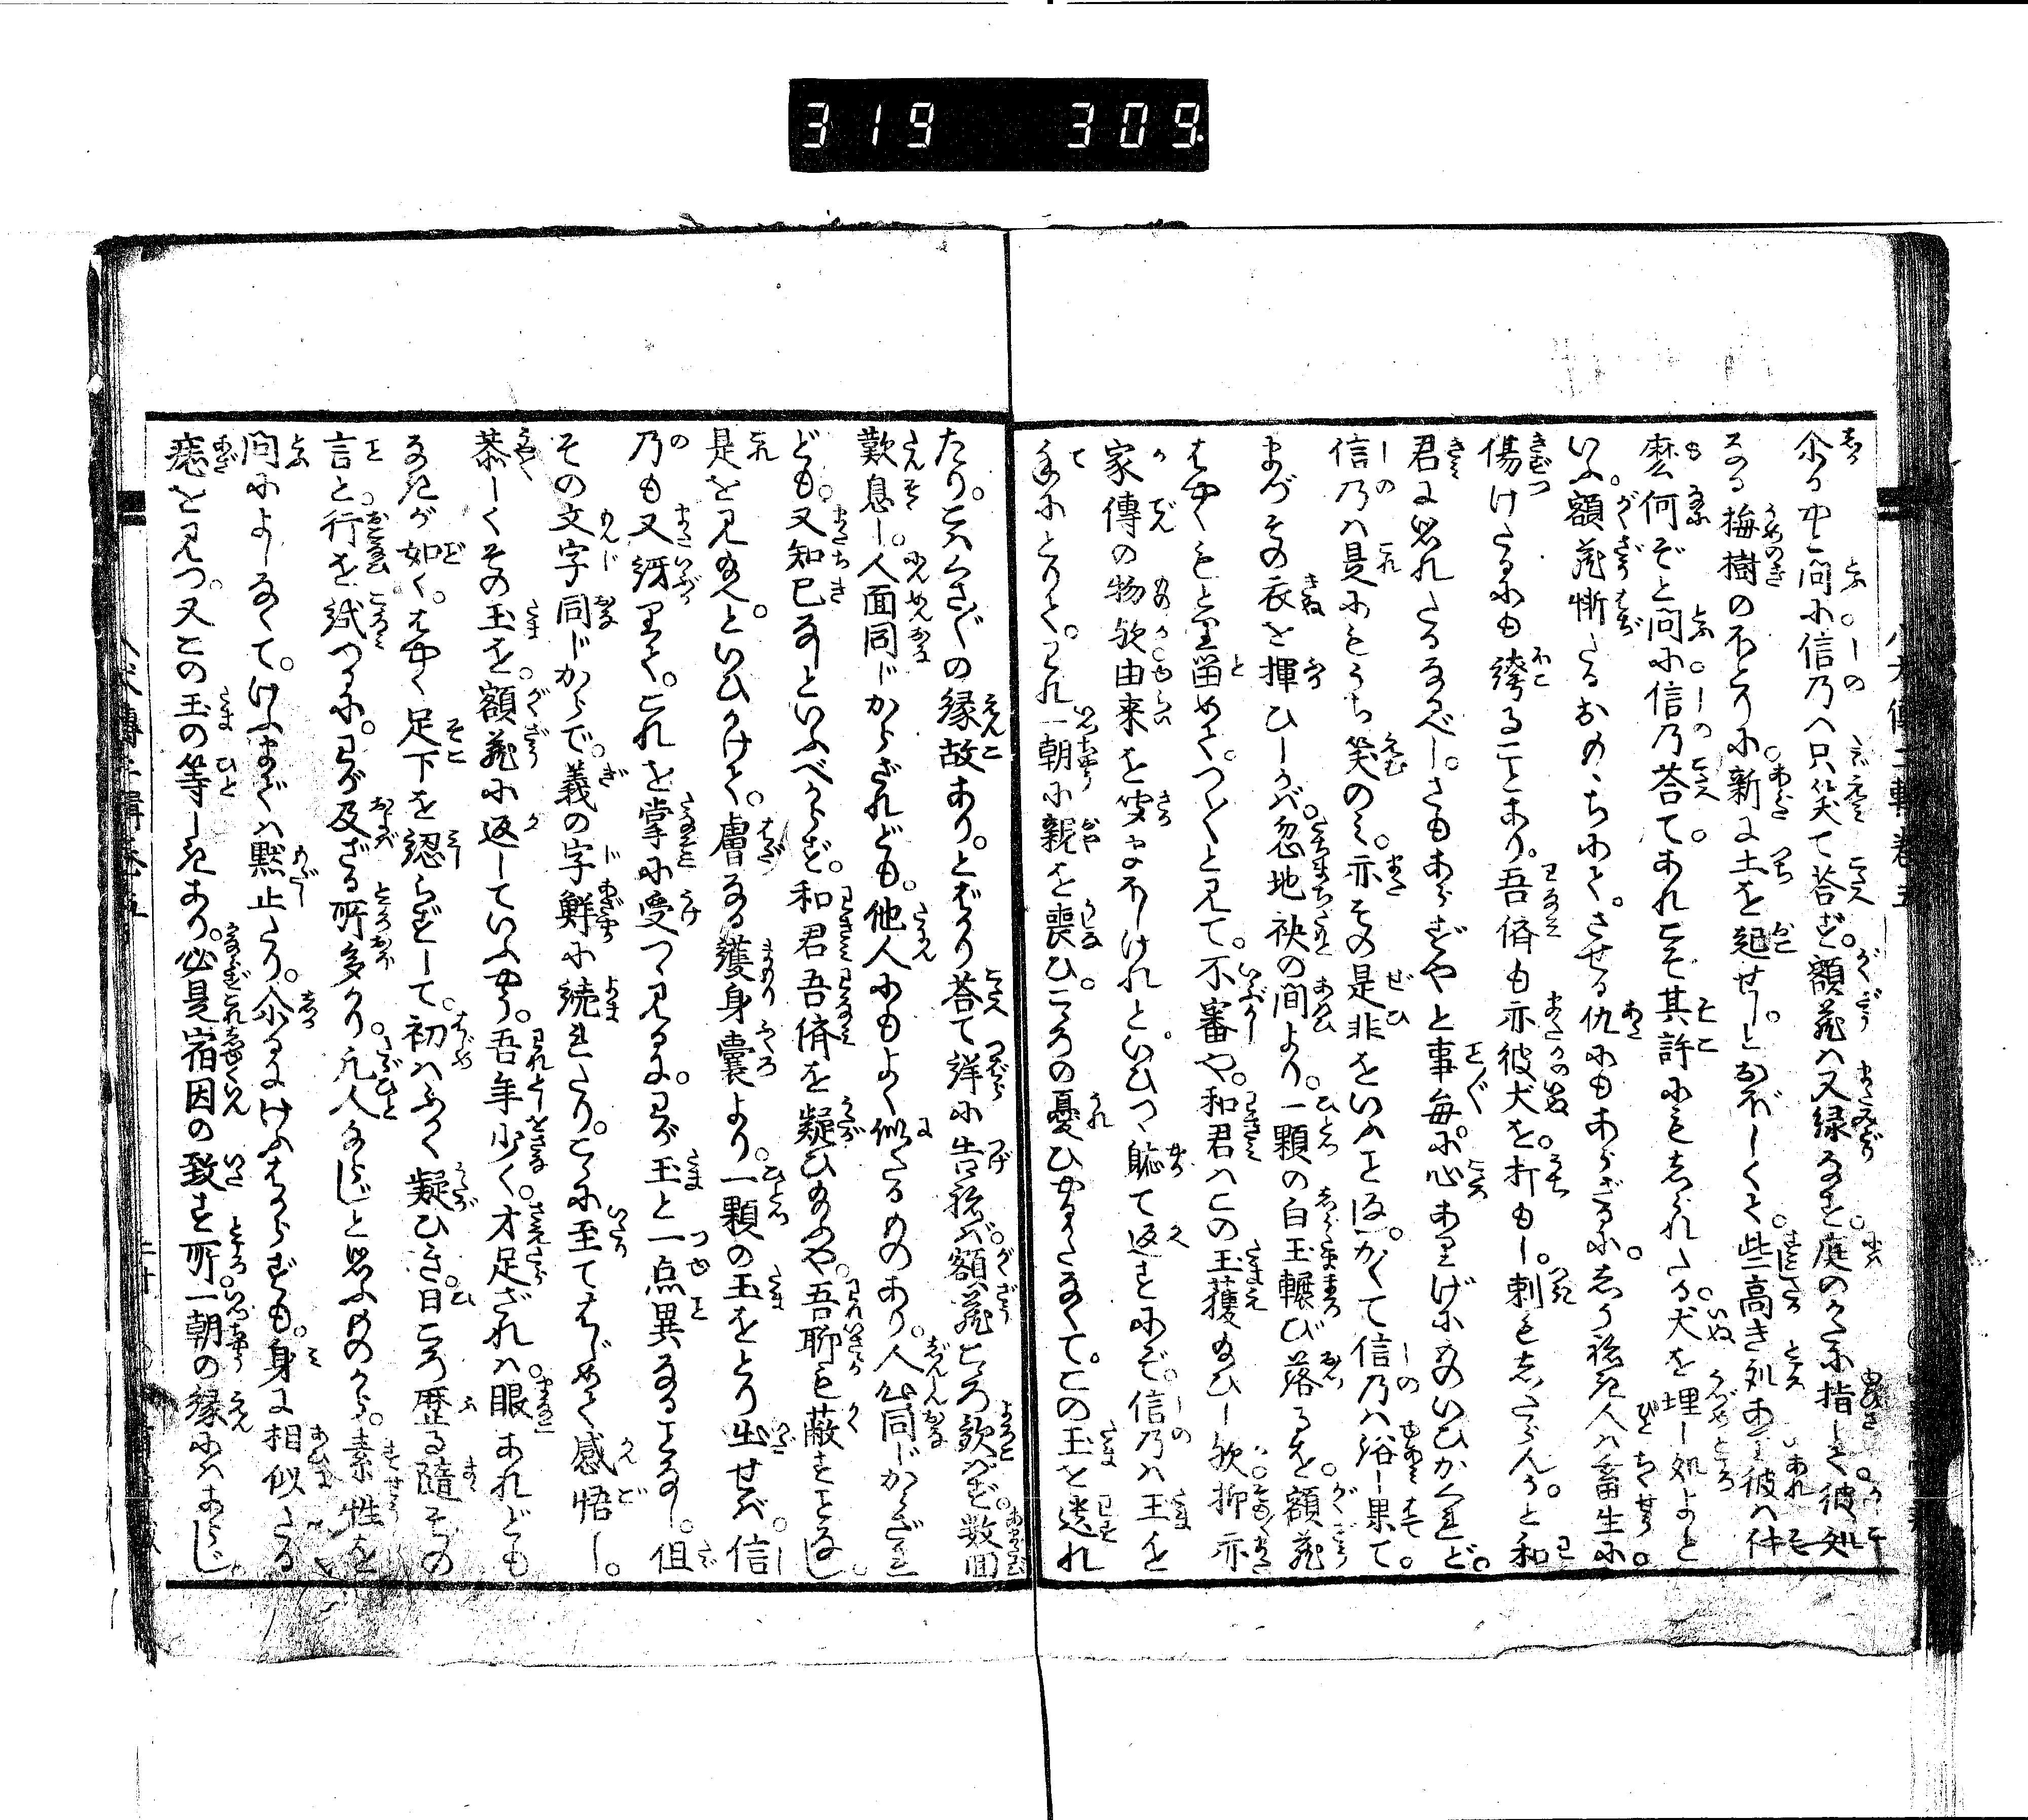 319 309
尓るやと問に信乃は只笑て荅ず。額蔵は又縁なる庭のかた指して彼処
なる梅樹のほとりに新に土を起せしとおぼしくて。些高き処あり彼は什
麼何ぞと問に信乃荅てあれこそ其許にもしられたる。犬を埋し処よと
いふ。額蔵慚たるおももちにて。させる仇にもあらざるに。しう獪き人は畜生に
傷けたるにも誇ることあり。吾儕も亦彼犬を。打もし。刺もしたらんか。と和
君に思れたるなるべし。さもあらずやと事毎に心ありげにものいひかくれど。
信乃は是にもうち笑のみ。亦その是非をいふことなし。かくて信乃は浴し果て。
まづその衣を揮ひしかば。忽地袂の間より。一顆の白玉輾び落るを。額蔵
はやくもとり留めて。つくつくと見て。不審や。和君はこの玉獲給ひし歟。抑亦
家傳の物歟由来を聞まほしけれと。いひつつ𧹞て返すにぞ。信乃は玉を
手にとりて。われ一朝に親を喪ひ。こころの憂ひやるかたなくて。この玉を遺れ
たり。こはくさぐさの縁故あり。とばかり荅て詳に告ねば。額蔵ところ歓ばず。数回
歎息し。人面同じからざれども。他人にもよく似たるものあり。人心同じからざれ
ども。又知己なしといふべからず。和君吾儕を疑ひ給ふや。吾聊も蔽すことなし。
是を見給へ。といひかけて。膚なる護身嚢より。一顆の玉をとり出せば。信
乃も又訝りて。これを掌に受つつ見るに。わが玉と一点異なることなし。但
その文字同じからで。義の字鮮に続れたり。ここに至てはじめて感悟し。
恭しくその玉を。額蔵に返していふやう。吾年少く。才足ざれば。眼あれども
なきが如く。はやく足下を認らずして。初はふかく疑ひき。日ころ歴る隨その
言と。行を試つるに。わが及ざる所多かり。凡人ならじと思ふものから。素性を
問によしなくて。けふまでは黙止たり。尓るにけふはからずも。身に相似たる
痣を見つ。又この玉の等しきあり。必是宿因の致す所。一朝の縁にはあらじ。